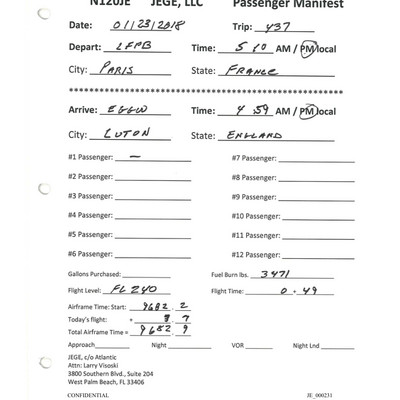 N120JE JEGE, LLC Passenger Manifest
Date: 01/23/2018 Trip: 437
Depart: LFPB Time: 5 10 AM / PM local
City: PARIS State: FRANCE
Arrive: EGGW Time: 4 59 AM / PM local
City: LUTON State: ENGLAND
#1 Passenger: — #7 Passenger:
#2 Passenger: #8 Passenger:
#3 Passenger: #9 Passenger:
#4 Passenger: #10 Passenger:
#5 Passenger: #11 Passenger:
#6 Passenger: #12 Passenger:
Gallons Purchased: Fuel Burn lbs. 3471
Flight Level: FL240 Flight Time: 0 + 49
Airframe Time: Start: 9682 . 2
Today's flight: + . 7
Total Airframe Time = 9682 . 9
Approach Night VOR Night Lnd
JEGE, c/o Atlantic
Attn: Larry Visoski
3800 Southern Blvd., Suite 204
West Palm Beach, FL 33406
CONFIDENTIAL JE_000231